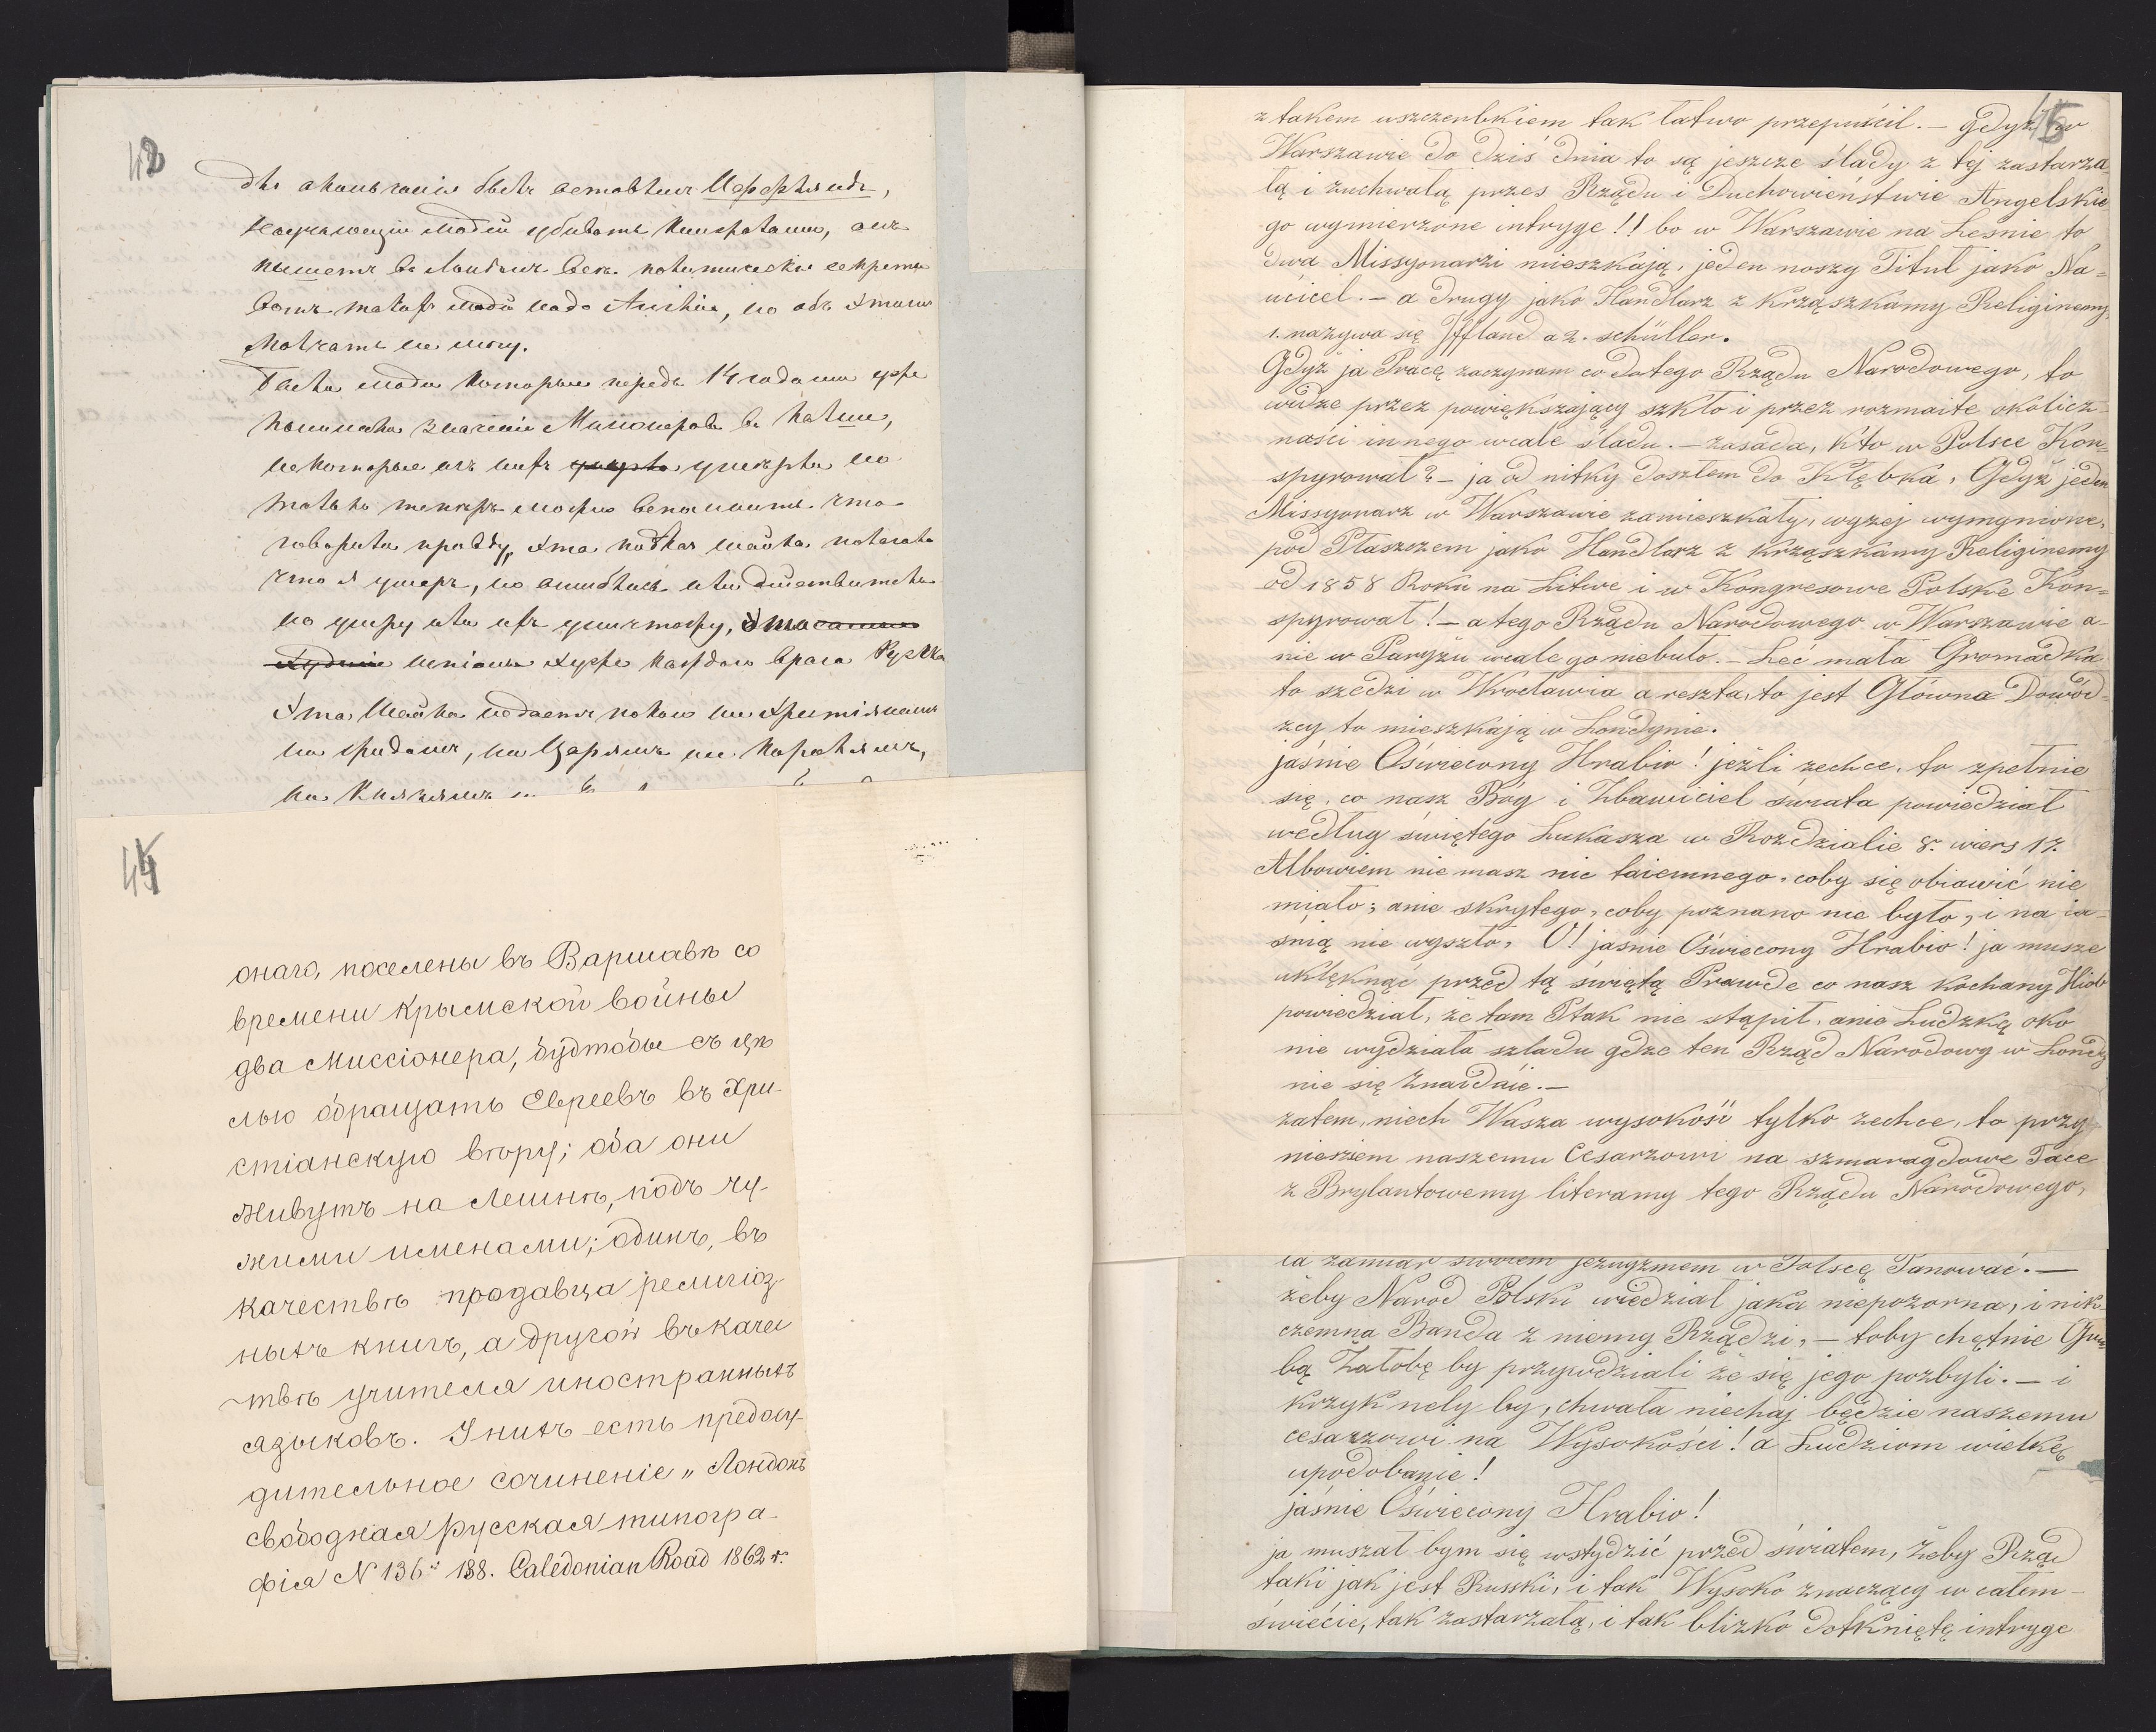 42
оставленъ Иффляндъ,
людей убивать
политическiе секреты
молчать не могу.
люди которые передъ 14 годами уже
понимали значенiе Мисiонеровъ въ
некоторые изъ нихъ умерли но
только теперь вспомнить что
говорили правду, эта подлая шайка полагала
что я умеръ, но ошиблись или действительно
но умру или ихъ уничтожу, это
шпiонъ хуже каждого врага
Эта шайка недаетъ покою ни Христiянамъ
ни жидамъ, ни Царямъ ни Королямъ,
ни Князямъ
44
онаго, поселены въ Варшавѣ со
времени Крымской войны
два миссіонера, будтобы съ цѣ
лью обращать Евреевъ въ Хри-
стіанскую вѣру; оба они
живутъ на Лешнѣ, подъ чу-
жими именами; одинъ, въ
качествѣ продавца религіоз-
ныхъ книгъ, а другой въ качес
твѣ учителя иностранныхъ
языковъ. У нихъ есть предосу-
дительное сочиненіе „Лондонъ
свободная русская типогра-
фія N 136 и 138. Caledonian Road 1862 г.
45
z takem uszczerbkiem tak łatwo przepuścil. — gdyż w
Warszawie do dziś dnia to są jeszcze ślady z tej zastarza-
łą i zuchwałą przes Rządu i Duchowieństwie Angelskie
go wymierzone intryge!! bo w Warszawie na Leśnie to
dwa Missyonarzi mieszkają, jeden noszy Tituł jako Na=
ucicel. — a drugy jako Handlarz z Krząszkamy Religinemy,
1. nazywa się Iffland a 2. schüller.
Gdyż ja Pracę zaczynam co dotego Rządu Narodowego, to
widze przez powiększający szkło i przez rozmaite okolicz-
naści innego wcale śladu. — zasada, k'to w Polsce Kon=
spyrował? — ja od nitky doszłem do Kłębka, Gdyż jeden
Missyonarz w Warszawie zamieszkały, wyzej wymynione,
pod Płaszczem jako Handlarz z Krząszkamy Religinemy
od 1858 Roku na Litwe i w Kongresowe Polske Kon=
spyrował! — a tego Rządu Narodowego w Warszawie a-
nie w Paryżu wcale go niebuło. — Leć mała Gromadka
to szedzi w Wrocławia a reszta, to jest Główna Dowód-
zcy to mieszkają w Londynie.
jaśnie Oświecony Hrabio! jeźli zechce, to zpełnie
się, co nasz Bóg i Zbawiciel świata powiedział
według świętego Łukasza w Rozdzialie 8. wiers 17.
Albowiem nie masz nic taiemnego, coby się obiawić nie
miało; anie skrytego, coby poznano nie było, i na ia-
śnią nie wyszło, O! jaśnie Oświecony Hrabio! ja musze
uklęknąć przed tą świętą Prawde co nasz kochany Hiob
powiedział, że tam Ptak nie stąpił, anie Ludzkę oko
nie wydziała szladu gdze ten Rząd Narodowy w Londy
nie się Znaidaie. —
zatem, niech Wasza wysokość tylko zechce, to przy
niesiem naszemu Cesarzowi na szmaragdowe Tace
z Brylantowemy literamy tego Rządu Narodowego,
zamiar swoiem jezuyzmem w Polscę Panować. —
żeby Narod Polski wiedział jaka niepozorna, i nik-
czemna Banda z niemy Rządzi, — toby chętnie Gru
bą Żałobę by przywdziali że się jego pozbyli. — i
krzyknely by, chwała niechaj będzie naszemu
cesarzowi na Wysokości! a Ludziom wielkę
upodobanie!
jaśnie Oświecony Hrabio!
ja muszał bym się wstydzić przed światem, Żeby Rząd
taki jak jest Russki, i tak Wysoko znaczący w całem-
świecie, tak zastarzałą, i tak blizko dotkniętę intryge